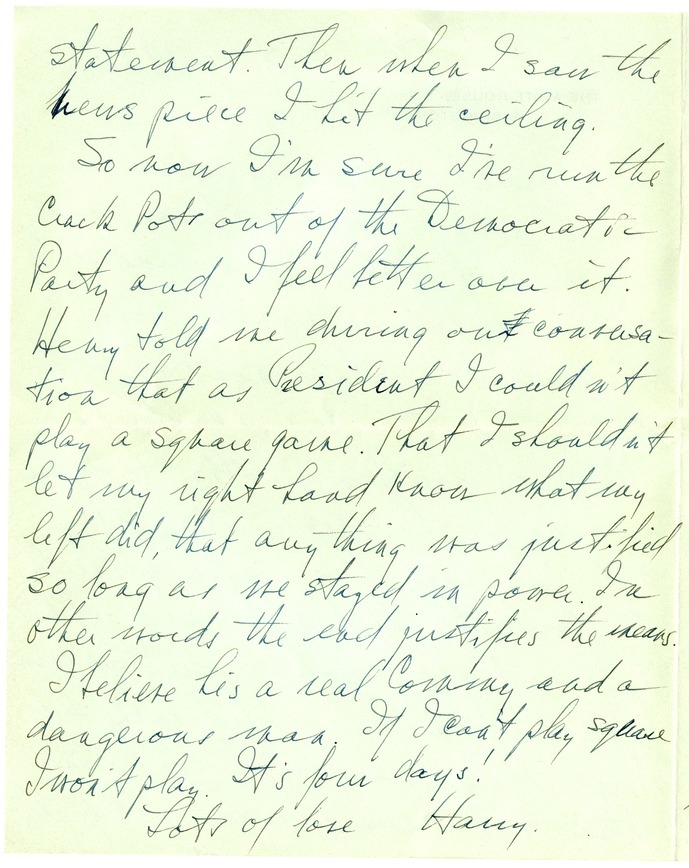 statement. Then when I saw the
news piece I hit the ceiling.
So now I'm sure I've run the
Crack Pots out of the Democratic
Party and I feel better over it.
Henry told me during our conversa-
tion that as President I couldn't
play a square game. That I shouldn't
let my right hand know what my
left did, that anything was justified
so long as we stayed in power. In
other words the end justifies the means.
I believe he's a real Commy and a
dangerous man. If I can't play square
I won't play. It's four days!
Lots of love Harry.